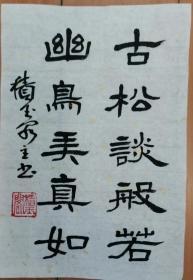 古松談般若
幽鳥弄真如
積玄家主书